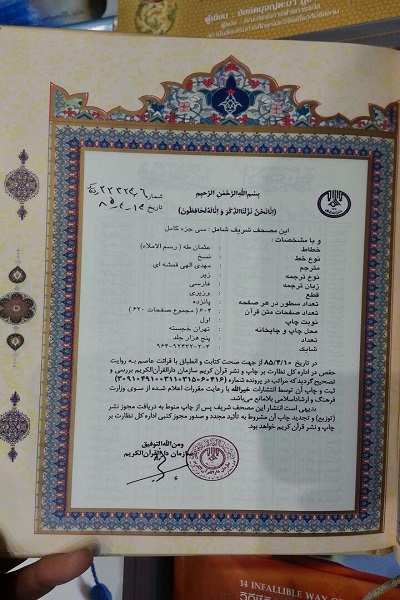 بسم الله الرّحمٰن الرّحیم
(اِنّا نَحنُ نَزَّلنَا الذِّکرَ وَ اِنّا لَهُ لَحافِظُونَ)
شماره
تاریخ
این مصحف شریف شامل: سی جزء کامل
و با مشخصات:
خطاط عثمان طه (رسم الاملاء)
نوع خط نسخ
مترجم مهدی الهی قمشه ای
نوع ترجمه زیر
زبان ترجمه فارسی
قطع وزیری
تعداد سطور در هر صفحه پانزده
تعداد صفحات متن قرآن ۶۰۴ (مجموع صفحات ۶۲۰)
نوبت چاپ اول
محل چاپ و چاپخانه تهران خجسته
تعداد پنج هزار جلد
شابک
در تاریخ ۸۵/۴/۱۰ از جهت صحت کتابت و انطباق با قرائت عاصم به روایت
حفص در اداره کل نظارت بر چاپ و نشر قرآن کریم سازمان دارالقرآن‌الکریم بررسی و
تصحیح گردید که مراتب در پرونده شماره
ثبت و چاپ آن توسط انتشارات خیرالله با رعایت مقررات اعلام شده از سوی وزارت
فرهنگ و ارشاد اسلامی بلامانع می‌باشد.
بدیهی است انتشار این مصحف شریف پس از چاپ منوط به دریافت مجوز نشر
(توزیع) و تجدید چاپ آن مشروط به تأیید مجدد و صدور مجوز کتبی اداره کل نظارت بر
چاپ و نشر قرآن کریم خواهد بود.
ومن الله التوفیق
سازمان دارالقرآن‌الکریم
14 INFALLIBLE WAY O